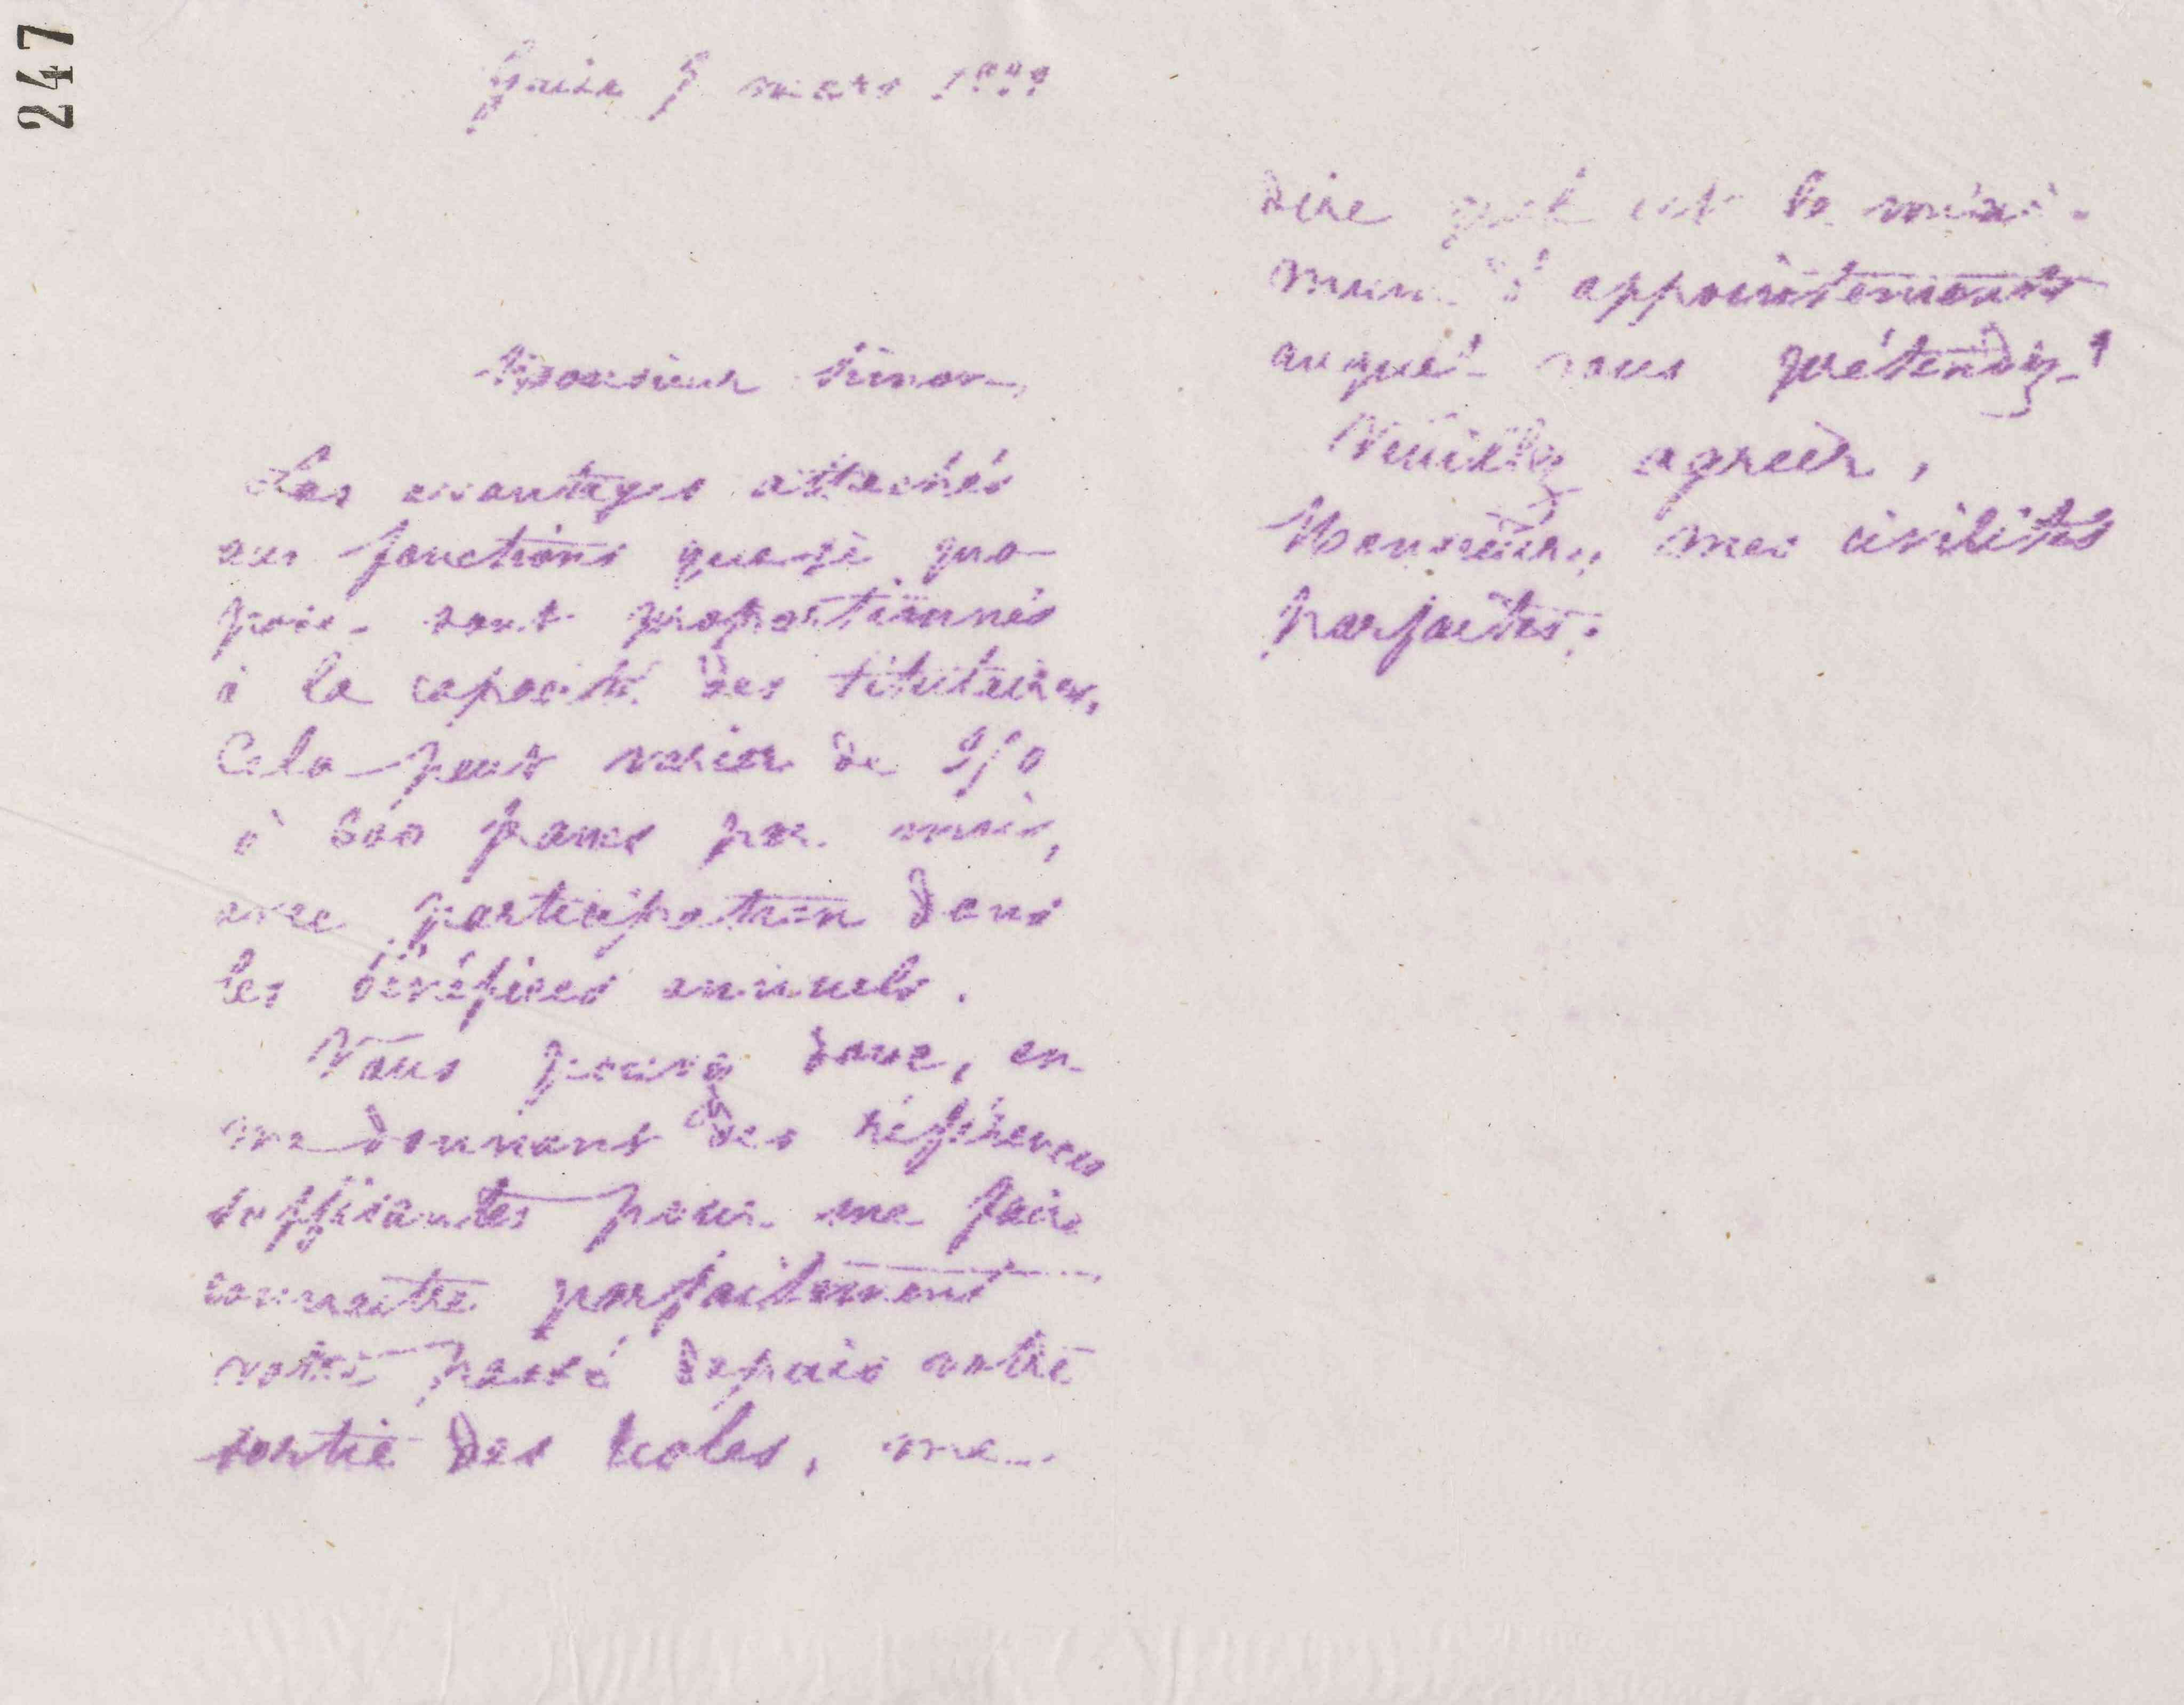 247
Guise 5 mars
Monsieur Simon,
Les avantages attachés
aux fonctions que je pro-
pose sont proportionnés
à la capacité des titulaires,
Cela peut varier de 250
à 600 francs par mois,
avec participation dans
les bénéfices annuels.
Vous pouvez donc, en
me donnant des références
suffisantes pour me faire
connaitre parfaitement
votre passé depuis votre
sortie des écoles, me
dire quel est le mini-
mum d'appointements
auquel vous prétendez?
Veuillez agréer,
Monsieur, mes civilités
parfaites.